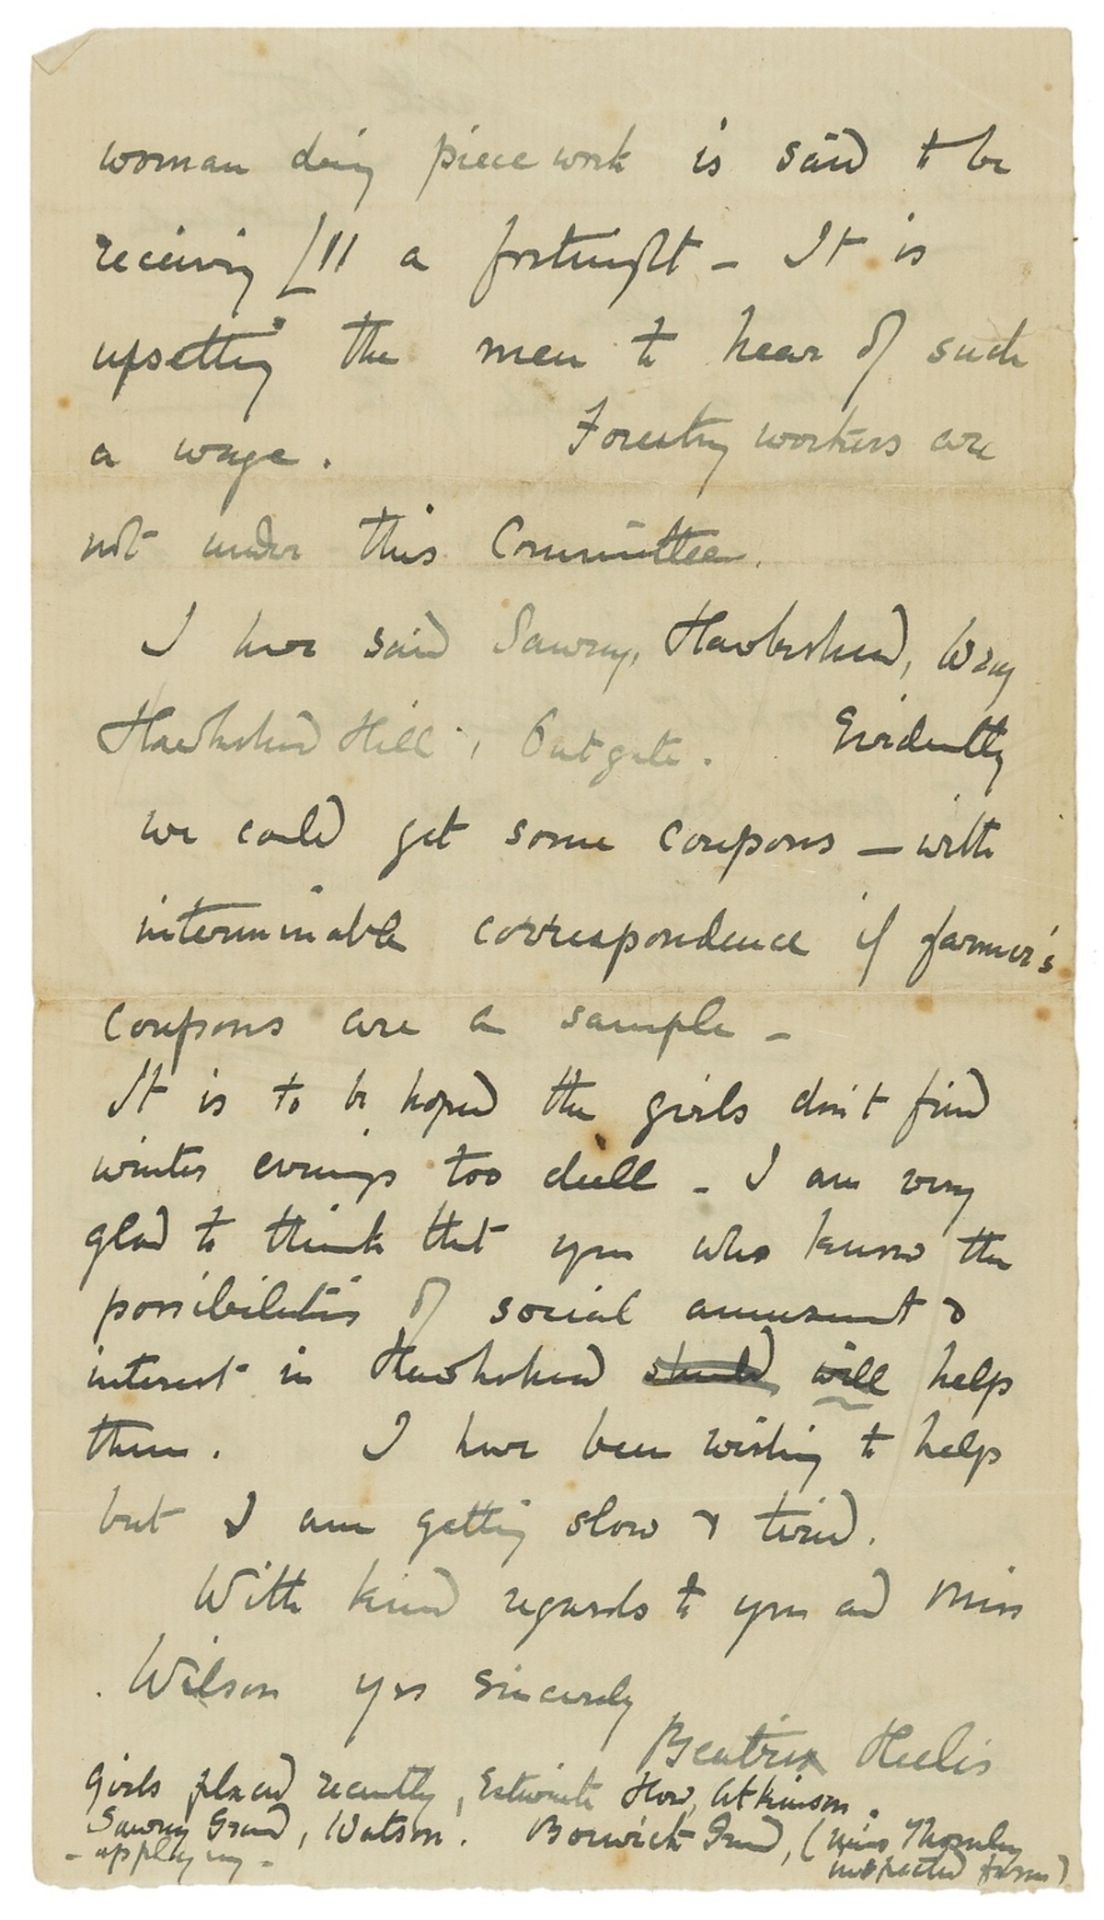 woman doing piece work is said to be
receiving £11 a fortnight - It is
upsetting the men to hear of such
a wage. Forestry workers are
not under this Committee.
I have said Sawrey, Hawkshead, Wray
Hawkshead Hill, Outgate. Evidently
we could get some coupons - with
interminable correspondence if farmer's
coupons are a sample -
It is to be hoped the girls don't find
winter evenings too dull - I am very
glad to think that you who know the
possibilities of social amusement &
interest in Hawkshead should will help
them. I have been wishing to help
but I am getting slow & tired.
With kind regards to you and Miss
Wilson yrs sincerely
Beatrix Heelis
girls placed recently, Esthwaite How, Atkinson.
Sawrey Ground, Watson. Borwick Grnd, (Miss Thornley
- applying - inspected farm)